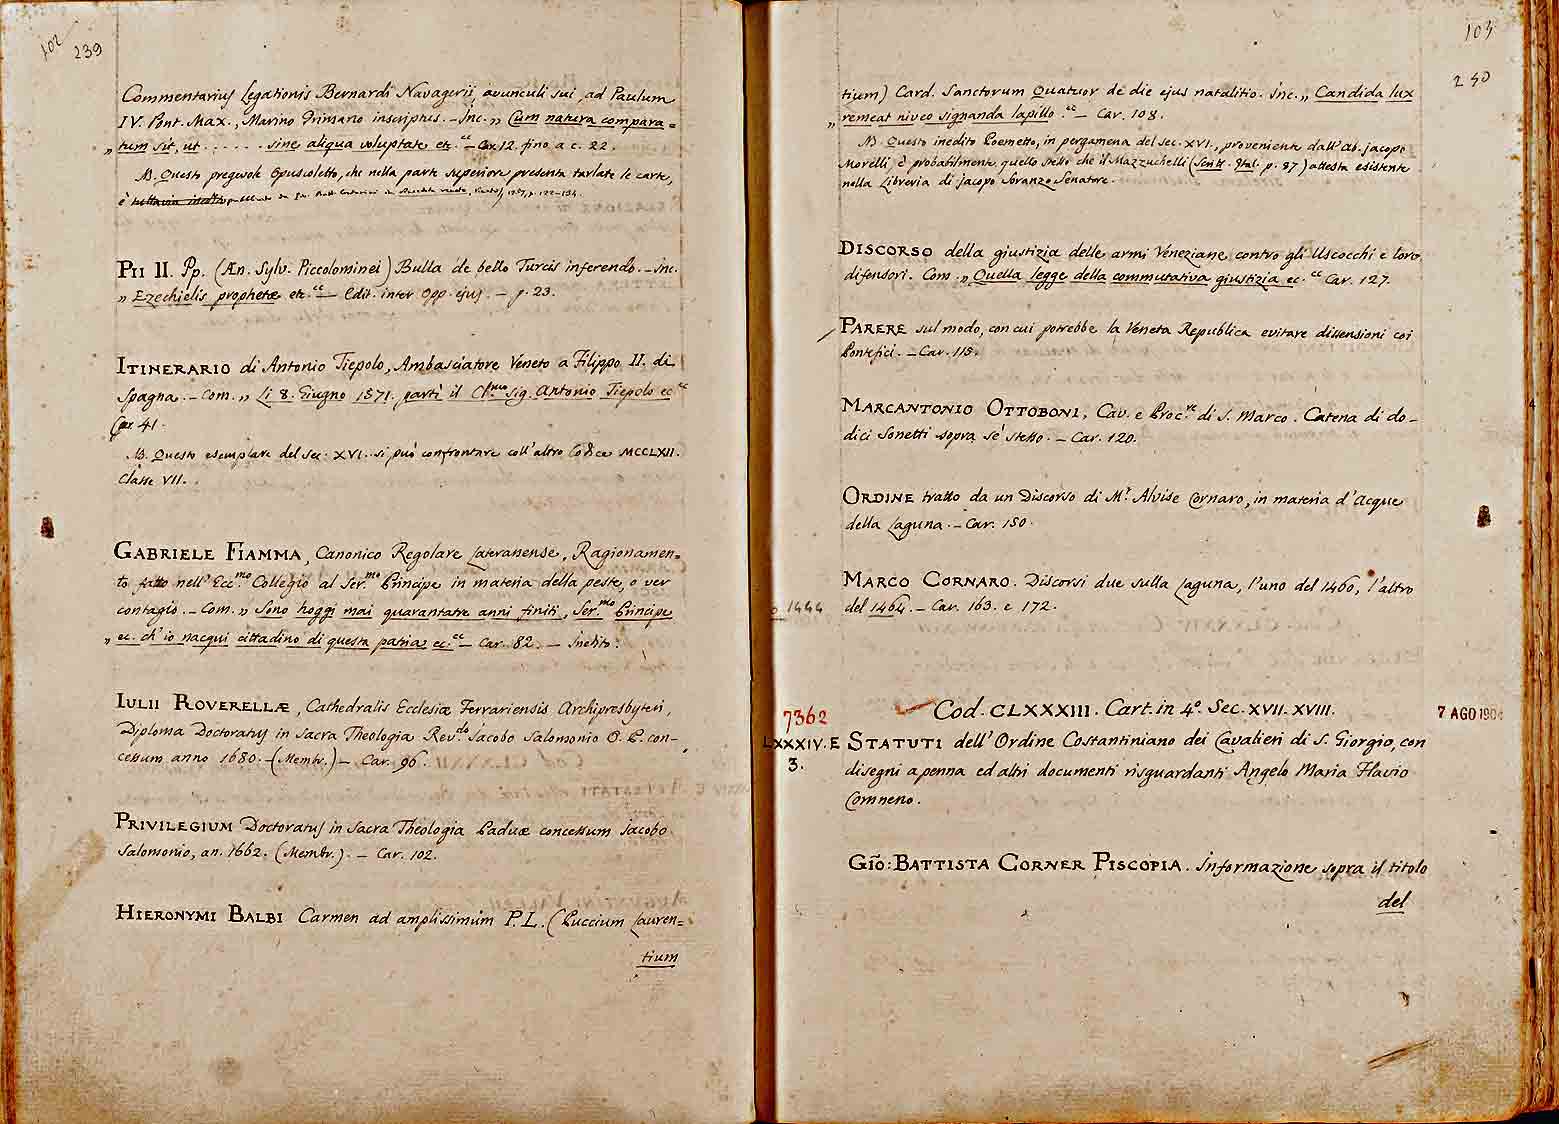 102
239
Commentarius Legationis Bernardi Navagerii, avunculi sui, ad Paulum
IV. Pont. Max., Marino Primario inscriptus. - Inc. „ Cum natura compara=
„ tum sit, ut ...... sine aliqua voluptate etc. ec - Car 12 fino a c. 22.
NB. Questo pregevole Opuscoletto, che nella parte superiore presenta tarlate le carte,
è tuttavia inedito
PII II. Pp. (Æn. Sylv. Piccolominei) Bulla de bello Turcis inferendo. - Inc.
„ Ezechielis prophetæ etc. ec - Edit. inter Opp. ejus. - p. 23.
ITINERARIO di Antonio Tiepolo, Ambasciatore Veneto a Filippo II. di
Spagna. - Com. „ Li 8. Giugno 1571. partì il Cl.mo Sig. Antonio Tiepolo ec. ec
Car 41.
NB. Questo esemplare del sec. XVI. si può confrontare coll'altro Codice MCCLXII.
Classe VII.
GABRIELE FIAMMA, Canonico Regolare Lateranense, Ragionamen=
to fatto nell'Ecc.mo Collegio al Ser.mo Principe in materia della peste, o ver
contagio. - Com. „ Sono hoggi mai quarantatre anni finiti, Ser.mo Principe
„ ec. ch'io nacqui cittadino di questa patria ec. ec - Car. 82. - Inedito.
IULII ROVERELLÆ, Cathedralis Ecclesiæ Ferrariensis Archipresbyteri,
Diploma Doctoratus in Sacra Theologia Rev.do Jacobo Salomonio O. P. con-
cessum anno 1680. - (Membr.) - Car. 96.
PRIVILEGIUM Doctoratus in Sacra Theologia Paduæ concessum Jacobo
Salomonio, an. 1662. (Membr.). - Car. 102.
HIERONYMI BALBI Carmen ad amplissimum P. L. (Puccium Lauren=
tium
103
240
tium) Card. Sanctorum Quatuor de die ejus natalitio. Inc. „ Candida lux
„ remeat niveo signanda lapillo. ec - Car. 108.
NB. Questo inedito Poemetto, in pergamena del sec. XVI., proveniente dall'Ab. Jacopo
Morelli è probabilmente quello stesso che il Mazzuchelli (Scritt. Ital. p. 87) attesta esistente
nella Libreria di Jacopo Soranzo Senatore.
DISCORSO della giustizia delle armi Veneziane contro gli Uscocchi e loro
difensori. Com. „ Quella legge della commutativa giustizia ec. ec Car. 127.
PARERE sul modo, con cui potrebbe la Veneta Republica evitare dissensioni coi
Pontefici. - Car. 115.
MARCANTONIO OTTOBONI, Cav. e Proc.re di S. Marco. Catena di do-
dici Sonetti sopra sè stesso. - Car. 120.
ORDINE tratto da un Discorso di Mr. Alvise Cornaro, in materia d'Acque
della Laguna. - Car. 150.
MARCO CORNARO. Discorsi due sulla Laguna, l'uno del 1460, l'altro
1444
del 1464. - Car. 163. e 172.
Cod. CLXXXIII. Cart. in 4º. Sec. XVII. XVIII.
7362
7 AGO 190
LXXXIV. E
3.
STATUTI dell'Ordine Costantiniano dei Cavalieri di S. Giorgio, con
disegni a penna ed altri documenti risguardanti Angelo Maria Flavio
Comneno.
GIO: BATTISTA CORNER PISCOPIA. Informazione sopra il titolo
del